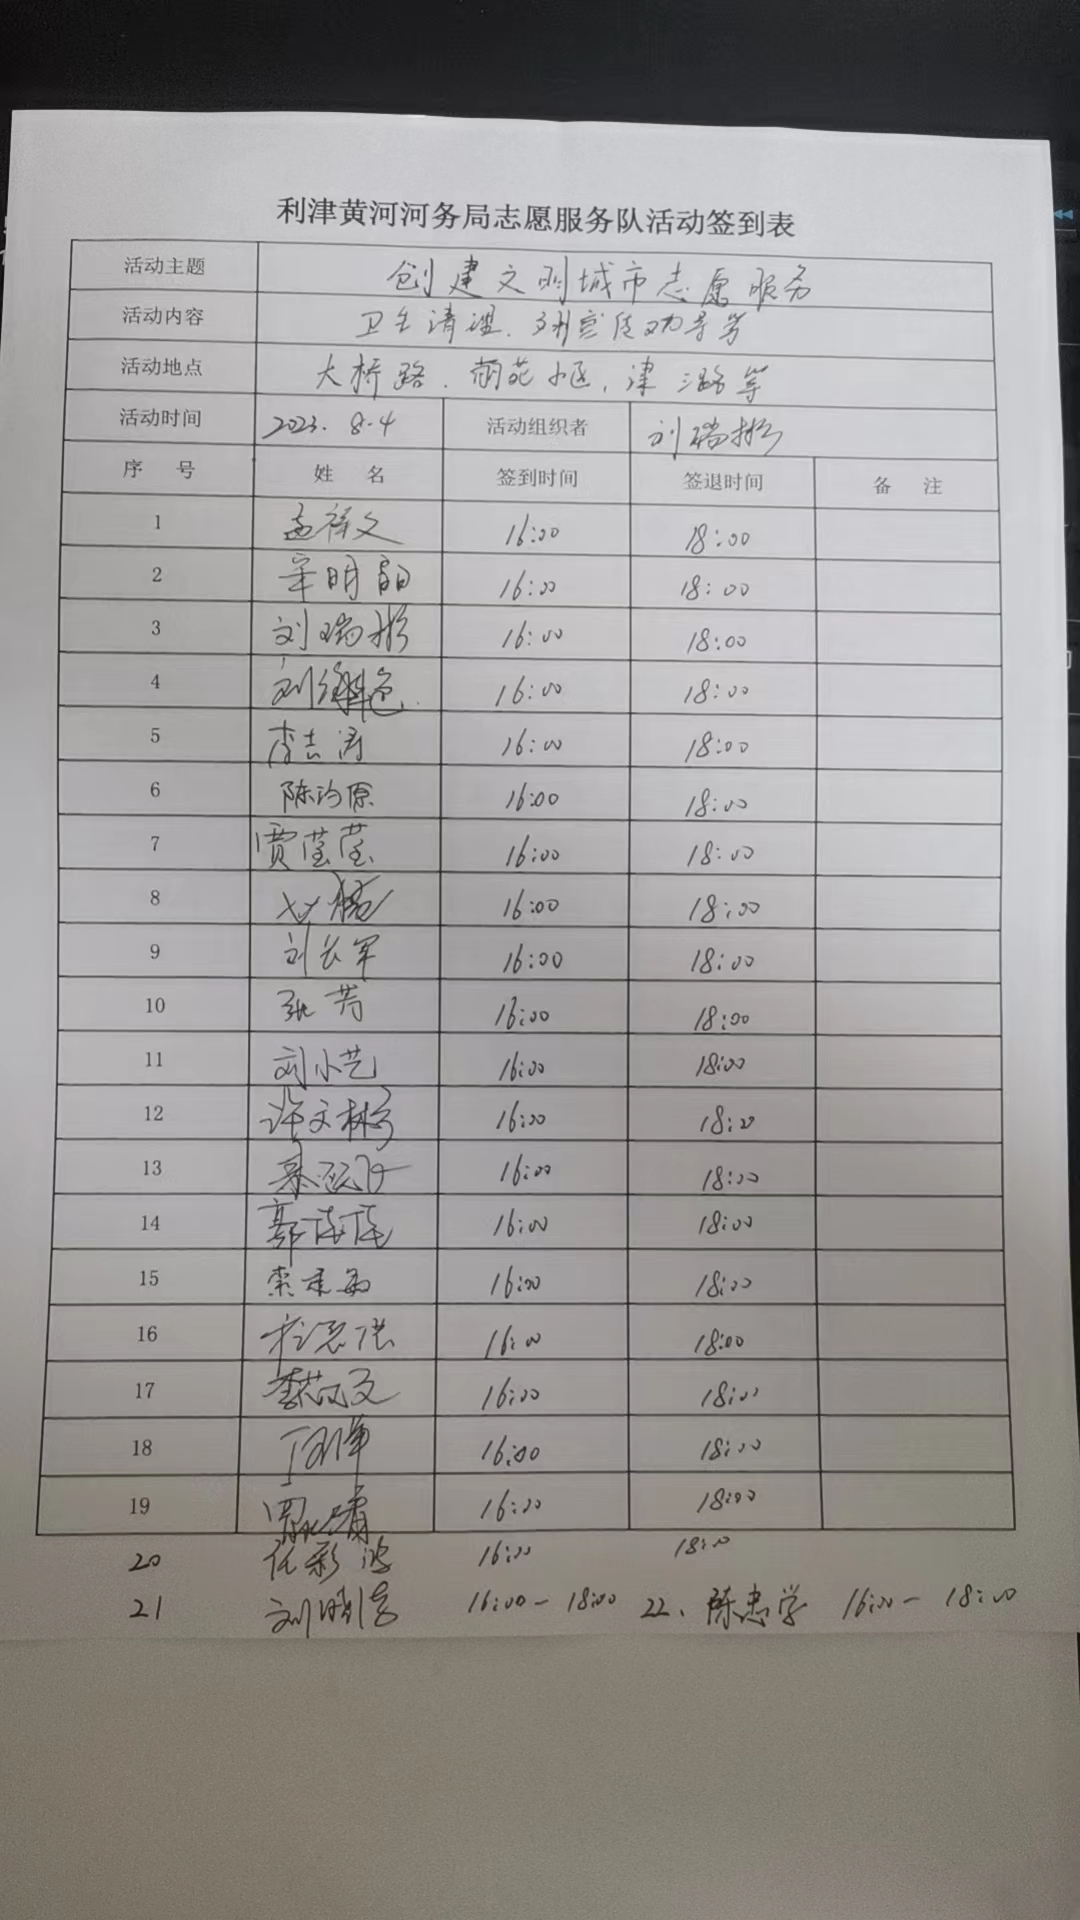 利津黄河河务局志愿服务队活动签到表
活动主题 创建文明城市志愿服务
活动内容 卫生清理、文明宣传劝导等
活动地点 大桥路、小区、津三路等
活动时间 2023.8.4 活动组织者 刘瑞彬
序 号 姓 名 签到时间 签退时间 备 注
1 孟祥文 16:00 18:00
2 辛明 16:00 18:00
3 刘瑞彬 16:00 18:00
4 刘 16:00 18:00
5 李志涛 16:00 18:00
6 陈 原 16:00 18:00
7 贾莹莹 16:00 18:00
8 16:00 18:00
9 刘长军 16:00 18:00
10 张芳 16:00 18:00
11 刘小艺 16:00 18:00
12 许文彬 16:00 18:00
13 16:00 18:00
14 郭倩倩 16:00 18:00
15 16:00 18:00
16 16:00 18:00
17 16:00 18:00
18 16:00 18:00
19 16:00 18:00
20 任彩 16:00 18:00
21 刘晓 16:00-18:00 22、陈忠学 16:00-18:00